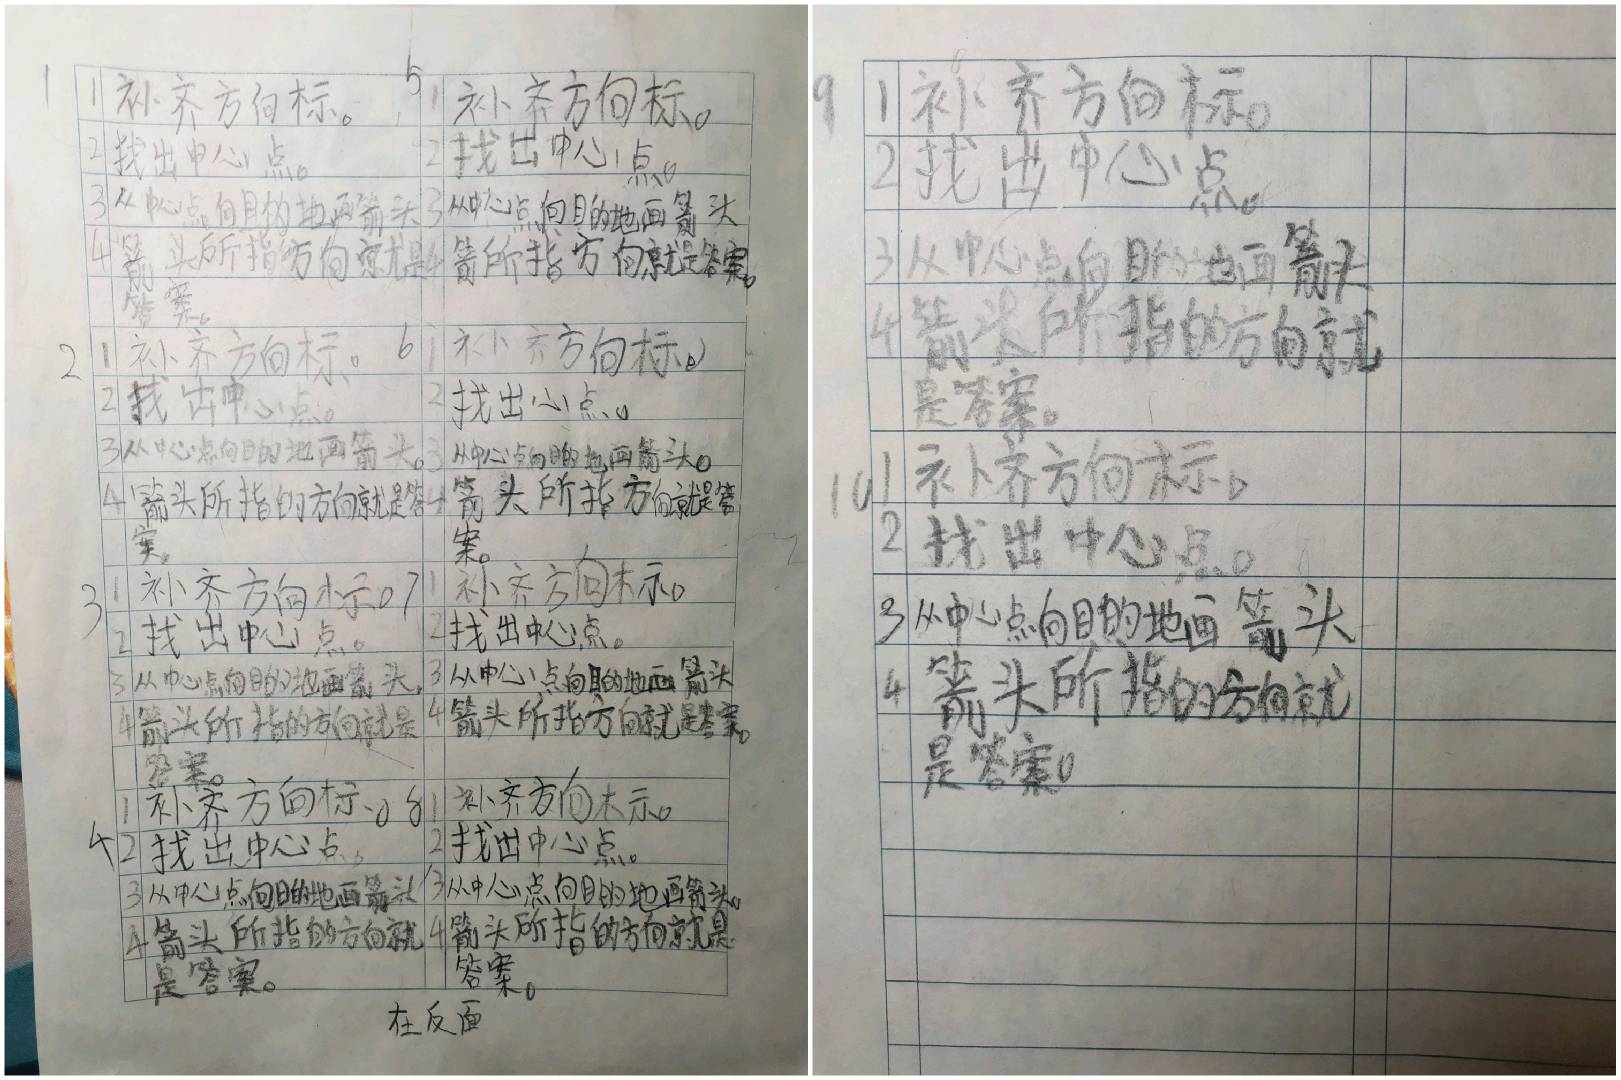 1
1 补齐方向标。
2 找出中心点。
3 从中心点向目的地画箭头
4 箭头所指方向就是
答案。
2
1 补齐方向标。
2 找出中心点。
3 从中心点向目的地画箭头。
4 箭头所指的方向就是答
案。
3
1 补齐方向标。
2 找出中心点。
3 从中心点向目的地画箭头,
4 箭头所指的方向就是
答案。
4
1 补齐方向标。
2 找出中心点。
3 从中心点向目的地画箭头
4 箭头所指的方向就
是答案。
5
1 补齐方向标。
2 找出中心点。
3 从中心点向目的地画箭头
4 箭所指方向就是答案。
6
1 补齐方向标。
2 找出心点。
3 从中心点向目的地画箭头。
4 箭头所指方向就是答
案。
7
1 补齐方向标。
2 找出中心点。
3 从中心点向目的地画箭头
4 箭头所指方向就是答案。
8
1 补齐方向标。
2 找出中心点。
3 从中心点向目的地画箭头。
4 箭头所指的方向就是
答案。
在反面
9
1 补齐方向标。
2 找出中心点。
3 从中心点向目的地画箭头
4 箭头所指的方向就
是答案。
10
1 补齐方向标。
2 找出中心点。
3 从中心点向目的地画箭头
4 箭头所指的方向就
是答案。